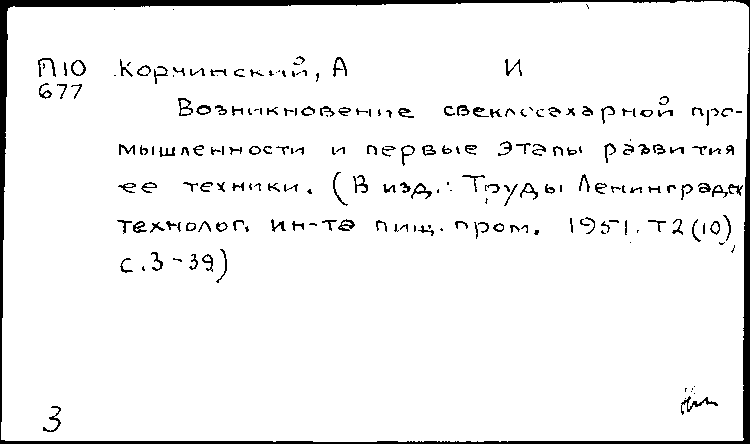 П10 Корчинский, А И
677
Возникновение свеклосахарной про-
мышленности и первые этапы развития
ее техники. (В изд.: Труды Ленинградск
технолог. ин-та пищ. пром. 1951. т2(10),
с.3-39)
3